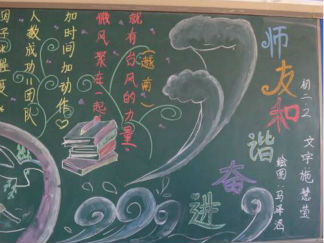 师友和谐
奋进
初一.2 文字施慧莹
绘图:马泽浩
微风聚在一起
就有台风的力量
(越南)
加时间加动作
人数成功=团队